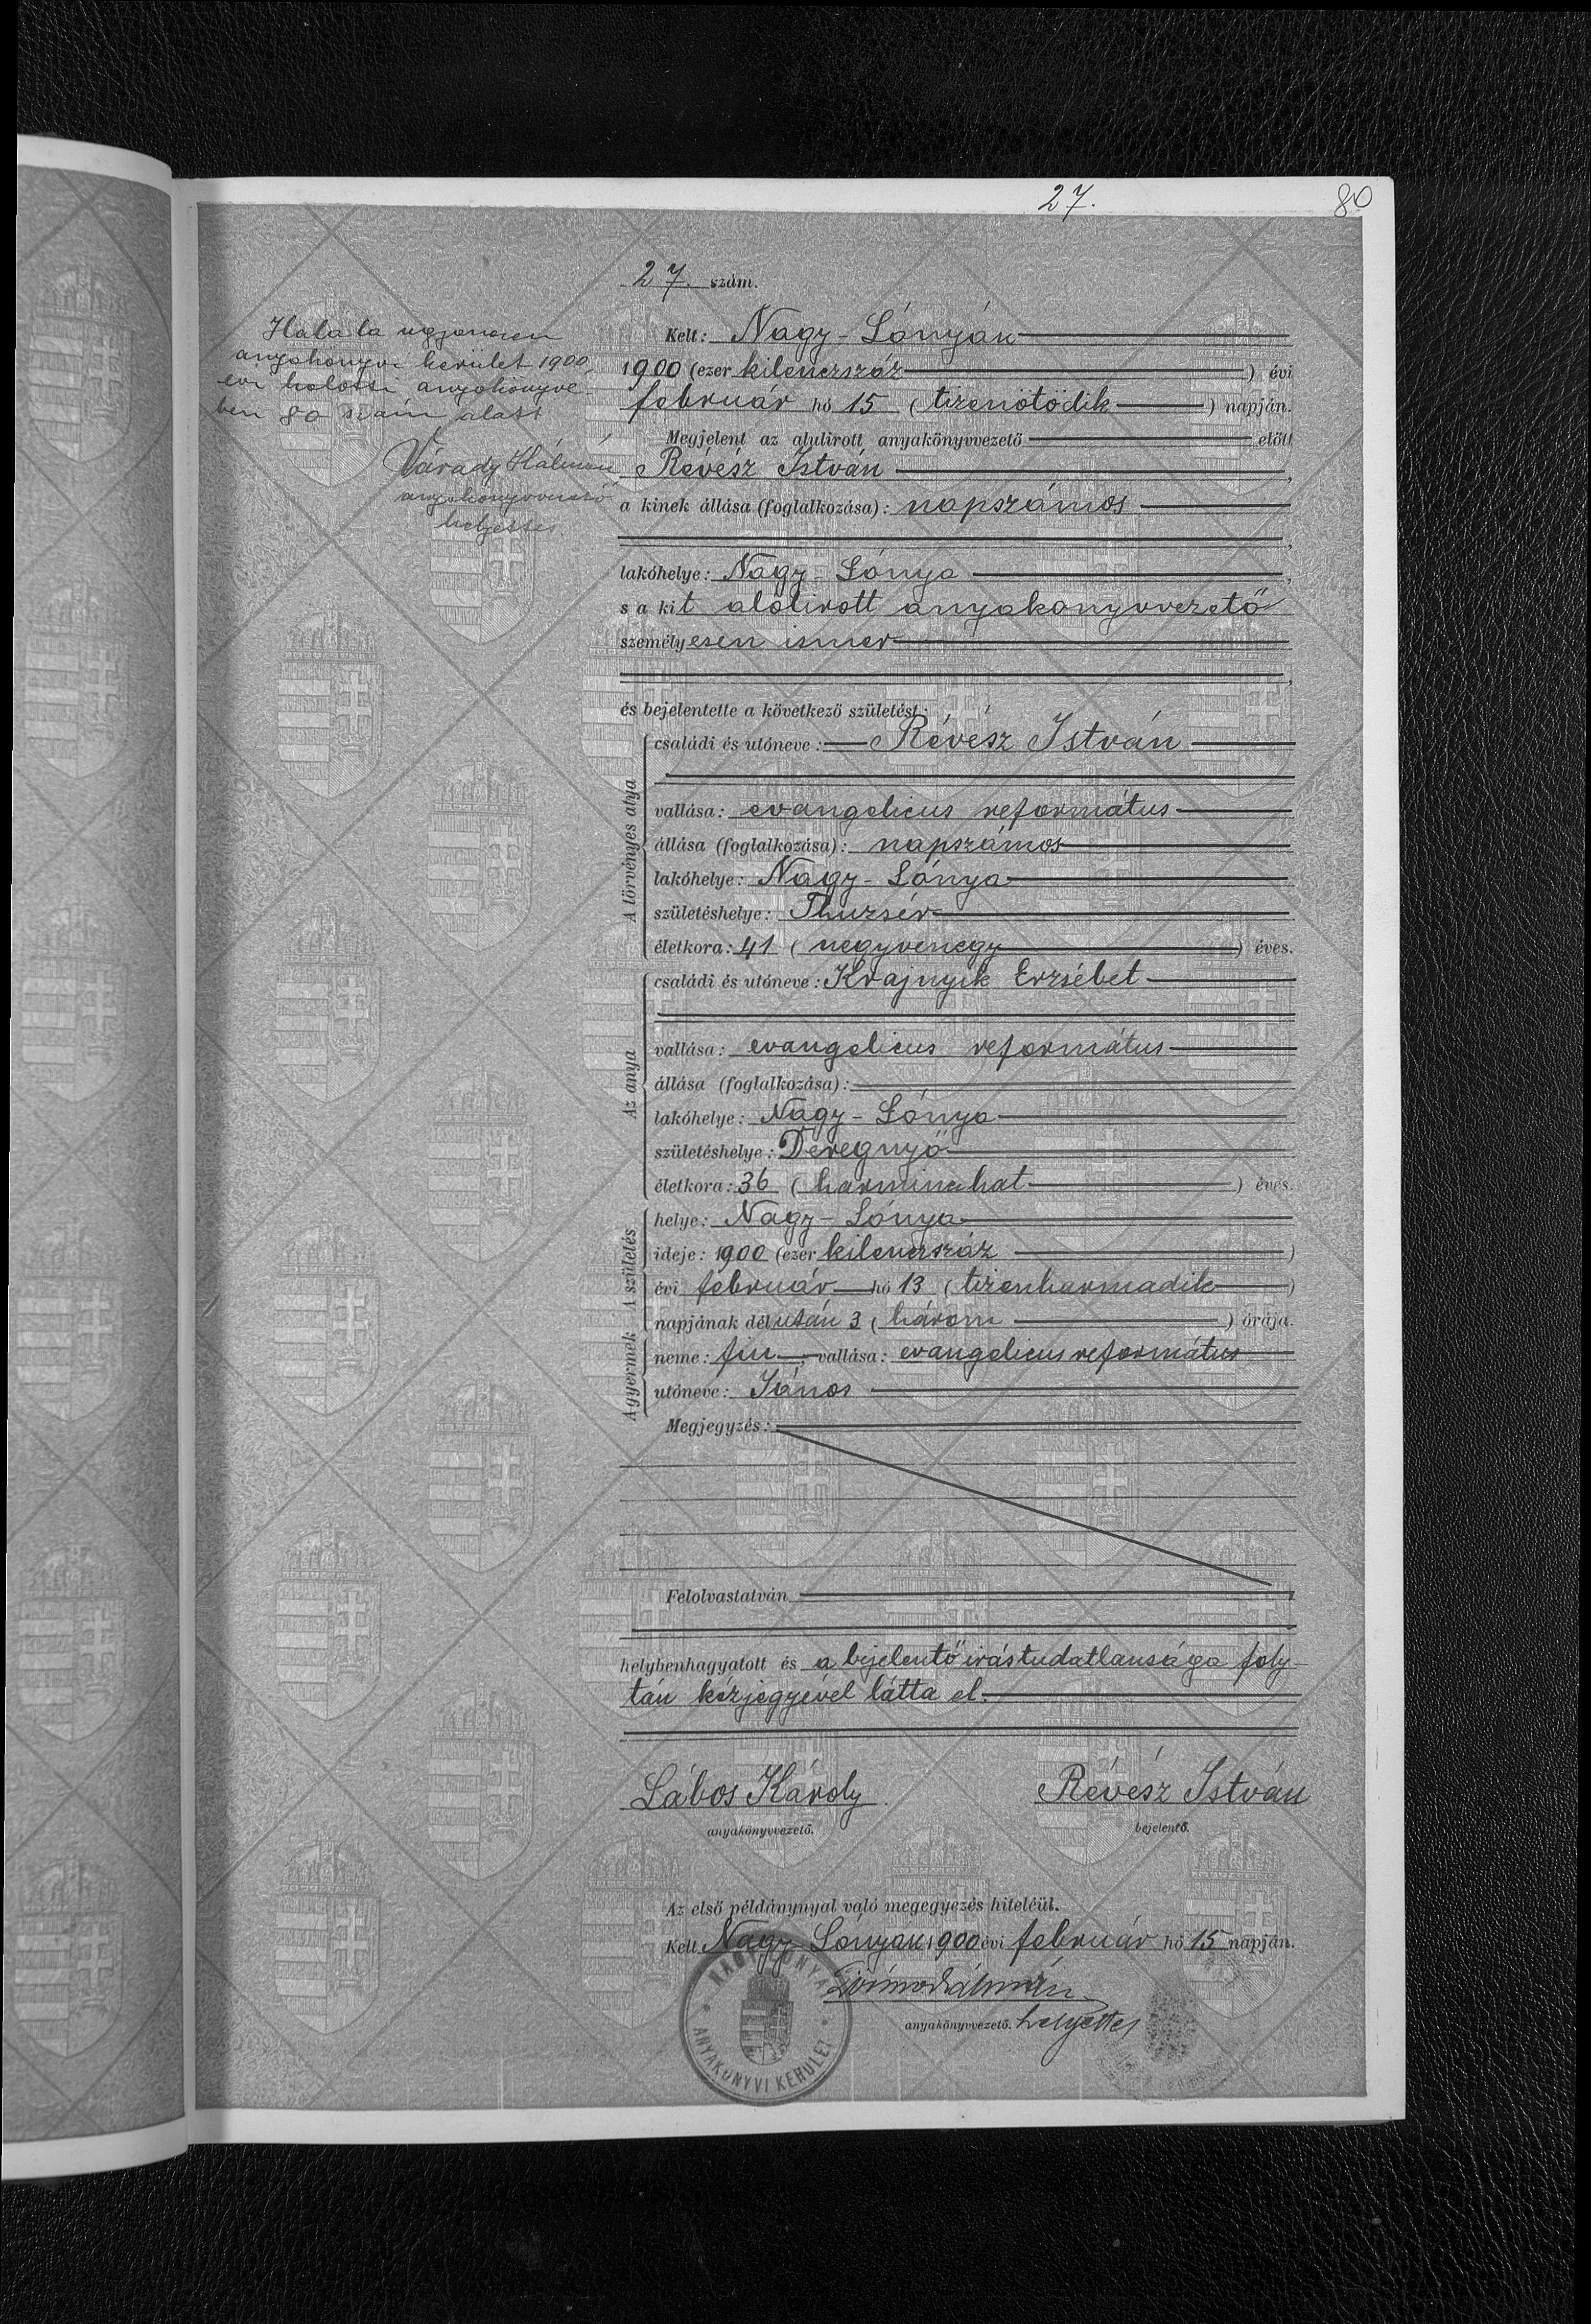 27.
80
27. szám.
Halála ugyanezen
anyakönyvi kerület 1900
évi halotti anyakönyvé-
ben 80 szám alatt
Várady Kálmán
anyakönyvvezető
helyettes.
Kelt: Nagy-Lónyán
1900 (ezer kilenczszáz) évi
február hó 15 (tizenötödik) napján.
Megjelent az alulirott anyakönyvvezető előtt
Révész István,
a kinek állása (foglalkozása): napszámos
,
lakóhelye: Nagy-Lónya,
s a kit alólirott anyakönyvvezető
személyesen ismer
,
és bejelentette a következő születést:
A törvényes atya
családi és utóneve: Révész István
vallása: evangelicus református
állása (foglalkozása): napszámos
lakóhelye: Nagy-Lónya
születéshelye: Thuzsér
életkora: 41 (negyvenegy) éves.
Az anya
családi és utóneve: Krajnyik Erzsébet
vallása: evangelicus református
állása (foglalkozása):
lakóhelye: Nagy-Lónya
születéshelye: Deregnyő
életkora: 36 (harminchat) éves.
A születés
helye: Nagy-Lónya
ideje: 1900 (ezer kilenczszáz)
évi február hó 13 (tizenharmadik)
napjának délután 3 (három) órája.
A gyermek
neme: fiu, vallása: evangelicus református
utóneve: János
Megjegyzés:
Felolvastatván,
helybenhagyatott és a bejelentő irástudatlansága foly-
tán kézjegyével látta el.
Lábos Károly. Révész István
anyakönyvvezető. bejelentő.
Az első példánynyal való megegyezés hiteléül.
Kelt Nagy-Lónyán 1900 évi február hó 15 napján.
anyakönyvvezető. helyettes
NAGY LÓNYA
ANYAKÖNYVI KERÜLET